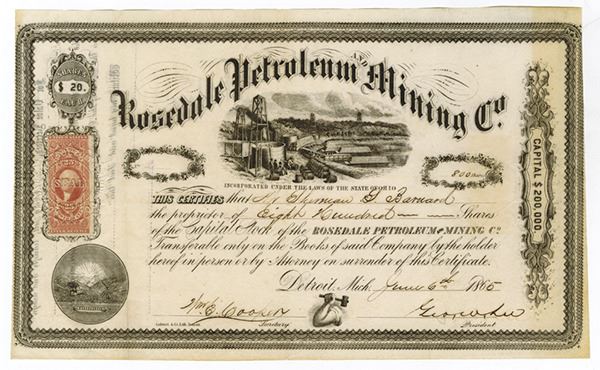 SHARES
$ 20.
EACH
Rosedale Petroleum AND Mining Co.
CAPITAL $200,000.
800
INCORPORATED UNDER THE LAWS OF THE STATE OF OHIO
THIS CERTIFIES that
the proprietor of Eight Hundred Shares
of the Capital Stock of the ROSEDALE PETROLEUM AND MINING Co.
Transferable only on the Books of said Company by the holder
hereof in person or by Attorney on surrender of this Certificate.
Detroit, Mich. June 6th 1865
Wm. E. Cooper
Secretary
President
25